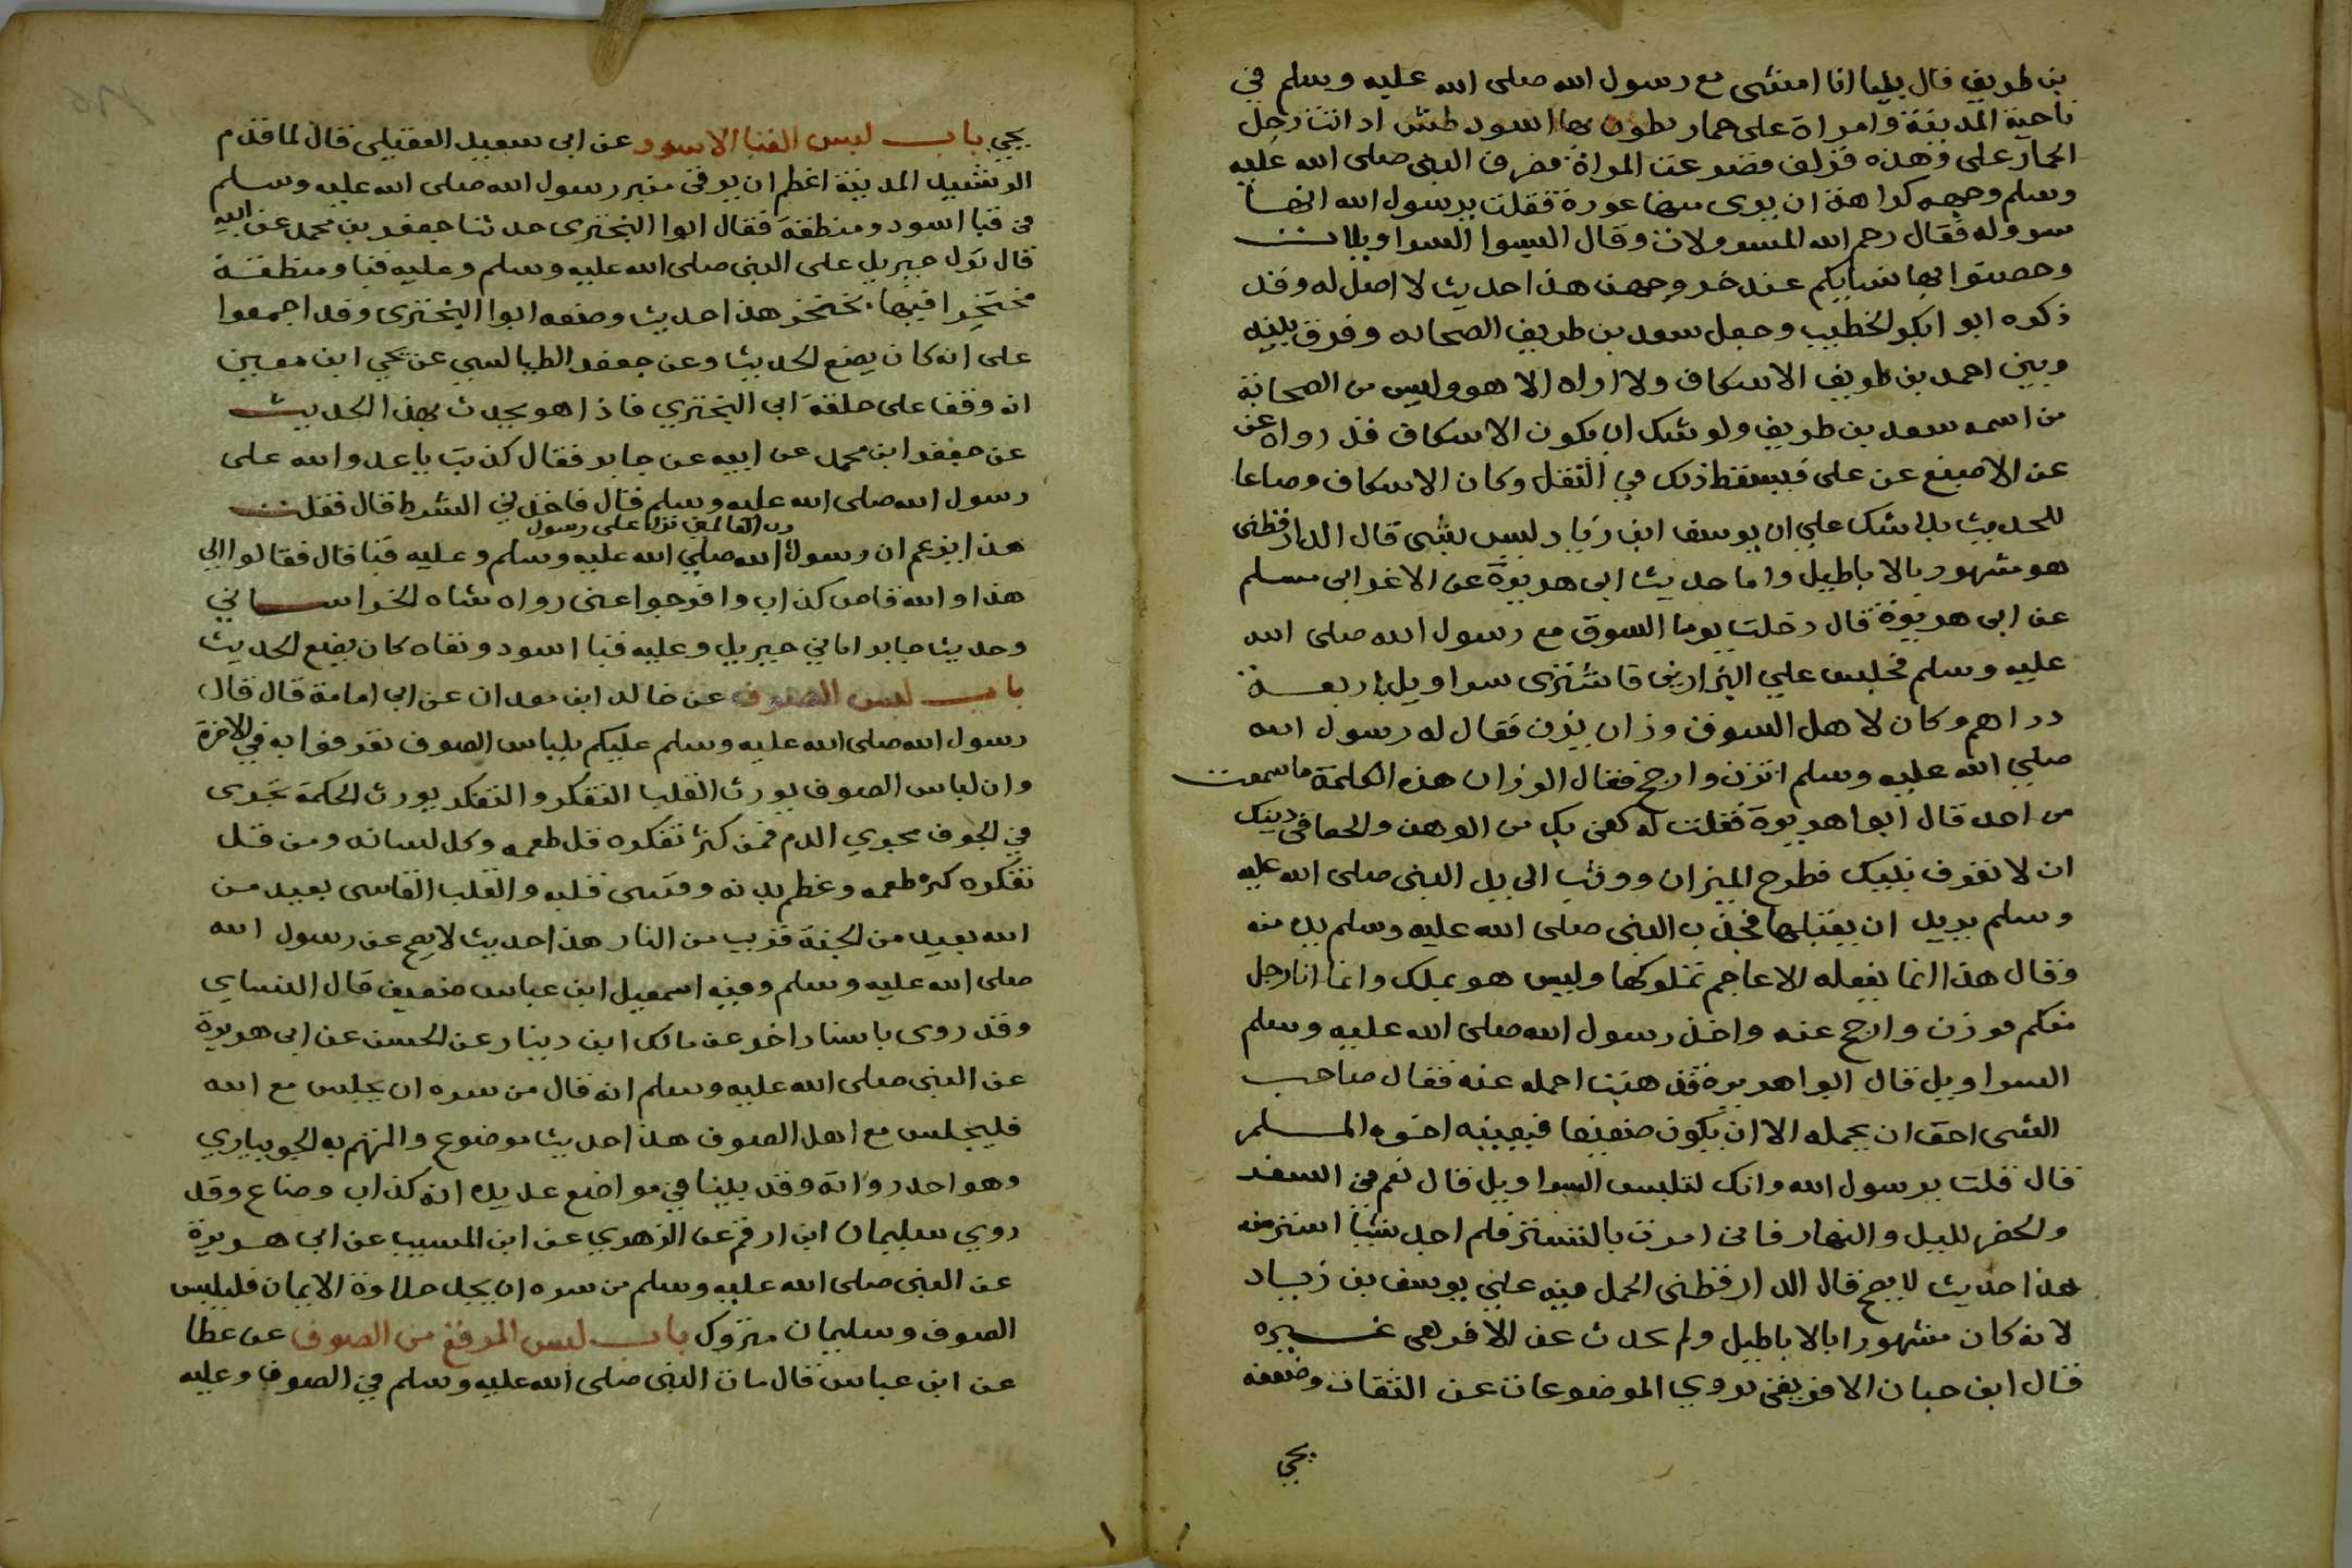 بن طريف قال بينما انا امشى مع رسول الله صلى الله عليه وسلم في
ناحية المدينة وامراة على حمار يطوف بها اسود
الحمار على وهذه فزلق فصرعت المراة فصرف النبى صلى الله عليه
وسلم وجهه كراهة ان يرى منها عورة فقلت يرسول الله انها
سروله فقال رحم الله المسرولات وقال البسوا السراويلات
وحصنوا بها نسايكم عند خروجهن هذا حديث لا اصل له وقد
ذكره ابو ابكر الخطيب وجعل سعد بن طريف الصحابه وفرق بينه
وبين احمد بن طريف الاسكاف ولا اراه الا هو وليس من الصحابة
من اسمه سعد بن طريف ولو شك ان يكون الاسكاف قد رواه عن
عن الاصبغ عن على فيسقط ذلك في النقل وكان الاسكاف وضاعا
للحديث بلا شك علي ان يوسف ابن زياد ليس بشى قال الدارقطنى
هو مشهور بالاباطيل واما حديث ابى هريرة عن الاغر ابى مسلم
عن ابى هريرة قال دخلت يوما السوق مع رسول الله صلى الله
عليه وسلم فجلس علي البزازين فاشترى سراويل باربعة
دراهم وكان لاهل السوق وزان يزن فقال له رسول الله
صلي الله عليه وسلم اتزن وارجح فقال الوزان هذه الكلمة ما سمعت
من احد قال ابوا هريرة فقلت له كفى بك من الوهن والجفا في دينك
ان لا تعرف نبيك فطرح الميزان ووثب الى يد النبى صلى الله عليه
وسلم يريد ان يقبلها فجذب النبى صلى الله عليه وسلم يده منه
وقال هذا انما يفعله الاعاجم بملوكها وليس هو بملك وانما انا رجل
منكم فوزن وارجح عنه واخذ رسول الله صلى الله عليه وسلم
السراويل قال ابوا هريرة فذهبت احمله عنه فقال صاحب
الشى احق ان يحمله الا ان يكون ضعيفا فيعينه اخوه المسلم
قال قلت يرسول الله وانك لتلبس السراويل قال نعم في السفر
والحضر لليل والنهار فانى امرت بالتستر فلم اجد شيا استر منه
هذا حديث لا يصح قال الدارقطنى الحمل فيه علي يوسف بن زياد
لانه كان مشهورا بالاباطيل ولم يحدث عن الافريقى غيره
قال ابن حبان الافريقى يروي الموضوعات عن الثقات وضعفه
يحي
يحي باب لبس القبا الاسود عن ابى سعيد العقيلى قال لما قدم
الرشيد المدينة اعظم ان يرقى منبر رسول الله صلى الله عليه وسلم
في قبا اسود ومنطقة فقال ابوا البختري حدثنا جعفر بن محمد عن ابيه
قال نزل جبريل على النبى صلى الله عليه وسلم وعليه قبا ومنطقة
مختجرا فيها بخنجر هذا حديث وضعه ابوا البختري وقد اجمعوا
على انه كان يضع الحديث وعن جعفر الطيالسي عن يحي ابن معين
انه وقف على حلقة ابى البختري فاذا هو يحدث بهذا الحديث
عن جعفر ابن محمد عن ابيه عن جابر فقال كذبت يا عدو الله على
رسول الله صلى الله عليه وسلم قال فاخذني الشرط قال فقلت
رب العالمين نزل على رسول
هذا يزعم ان رسول الله صلي الله عليه وسلم وعليه قبا قال فقالوا لي
هذا والله قاص كذاب وافرجوا عنى رواه شاه الخراساني
وحديث جابر اتاني جبريل وعليه قبا اسود وشاه كان يضع الحديث
باب لبس الصوف عن خالد ابن معدان عن ابى امامة قال قال
رسول الله صلى الله عليه وسلم عليكم بلباس الصوف تعرفوا به في الاخرة
وان لباس الصوف يورث القلب التفكر والتفكر يورث الحكمة تجرى
في الجوف مجري الدم فمن كثر تفكره قل طعمه وكل لسانه ومن قل
تفكره كثر طعمه وعظم بدنه وقسى قلبه والقلب القاسى بعيد من
الله بعيد من الجنة قريب من النار هذا حديث لا يصح عن رسول الله
صلى الله عليه وسلم وفيه اسمعيل ابن عياش ضعيف قال النساي
وقد روى باسناد اخر عن مالك ابن دينار عن الحسن عن ابى هريرة
عن النبى صلى الله عليه وسلم انه قال من سره ان يجلس مع الله
فليجلس مع اهل الصوف هذا حديث موضوع والمتهم به الجويباري
وهو احد رواته وقد بينا في مواضع عديده انه كذاب وضاع وقد
روي سليمان ابن ارقم عن الزهري عن ابن المسيب عن ابى هريرة
عن النبى صلى الله عليه وسلم من سره ان يجد حلاوة الايمان فليلبس
الصوف وسليمان متروك باب لبس المرقع من الصوف عن عطا
عن ابن عباس قال مات النبى صلى الله عليه وسلم في الصوف وعليه